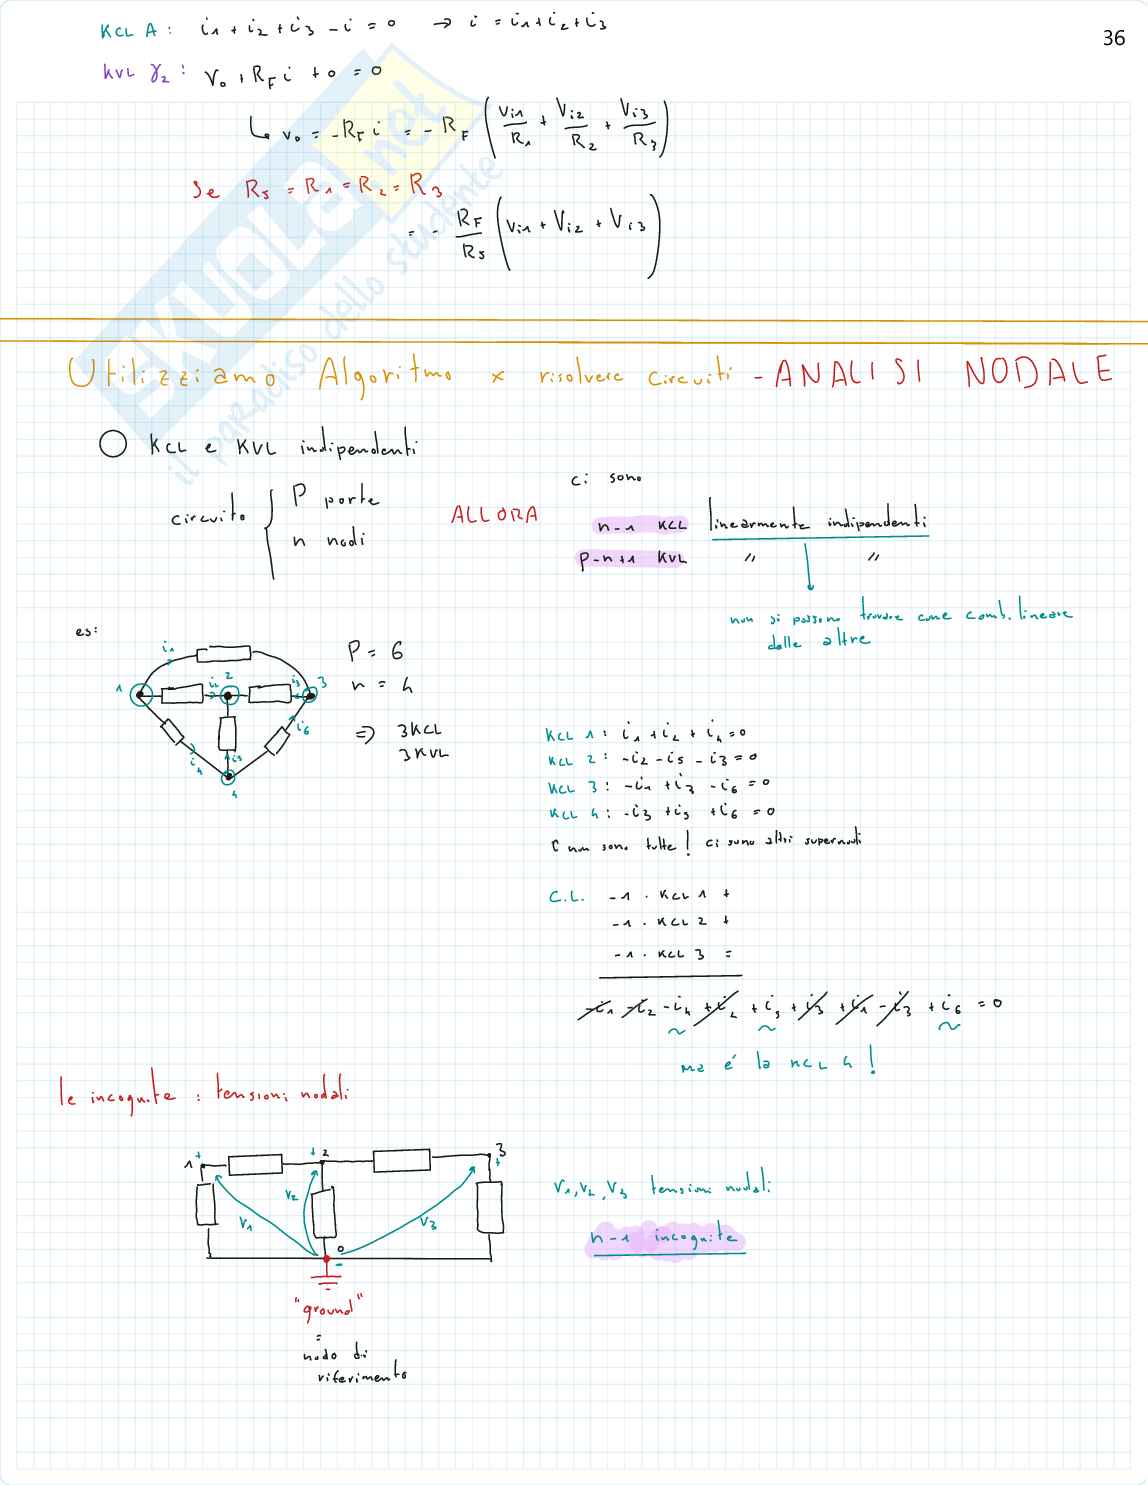 36
KCL A: i1 + i2 + i3 - i = 0 → i = i1 + i2 + i3
KVL γ2: V0 + RF i + 0 = 0
↳ v0 = -RF i = - RF (Vi1/R1 + Vi2/R2 + Vi3/R3)
Se RS = R1 = R2 = R3
= - RF/RS (Vi1 + Vi2 + Vi3)
SKUOLA.net
il paradiso dello studente
Utilizziamo Algoritmo x risolvere circuiti - ANALISI NODALE
KCL e KVL indipendenti
circuito { P porte
n nodi
ALLORA
ci sono
n-1 KCL linearmente indipendenti
p-n+1 KVL " "
non si possono trovare come comb. lineare
delle altre
es:
i1
1 i2 2 i3 3
i4 i5 i6
4
P = 6
n = 4
⇒ 3KCL
3KVL
KCL 1: i1 + i2 + i4 = 0
KCL 2: -i2 - i5 - i3 = 0
KCL 3: -i1 + i3 - i6 = 0
KCL 4: -i3 + i5 + i6 = 0
E non sono tutte! ci sono altri supernodi
C.L. -1 · KCL 1 +
-1 · KCL 2 +
-1 · KCL 3 =
-i1 -i2 -i4 +i2 +i5 +i3 +i1 -i3 +i6 = 0
ma é la KCL 4!
le incognite: tensioni nodali
1 + + 2 3 +
V1 V2 V3
0 -
"ground"
=
nodo di
riferimento
V1, V2, V3 tensioni nodali
n-1 incognite